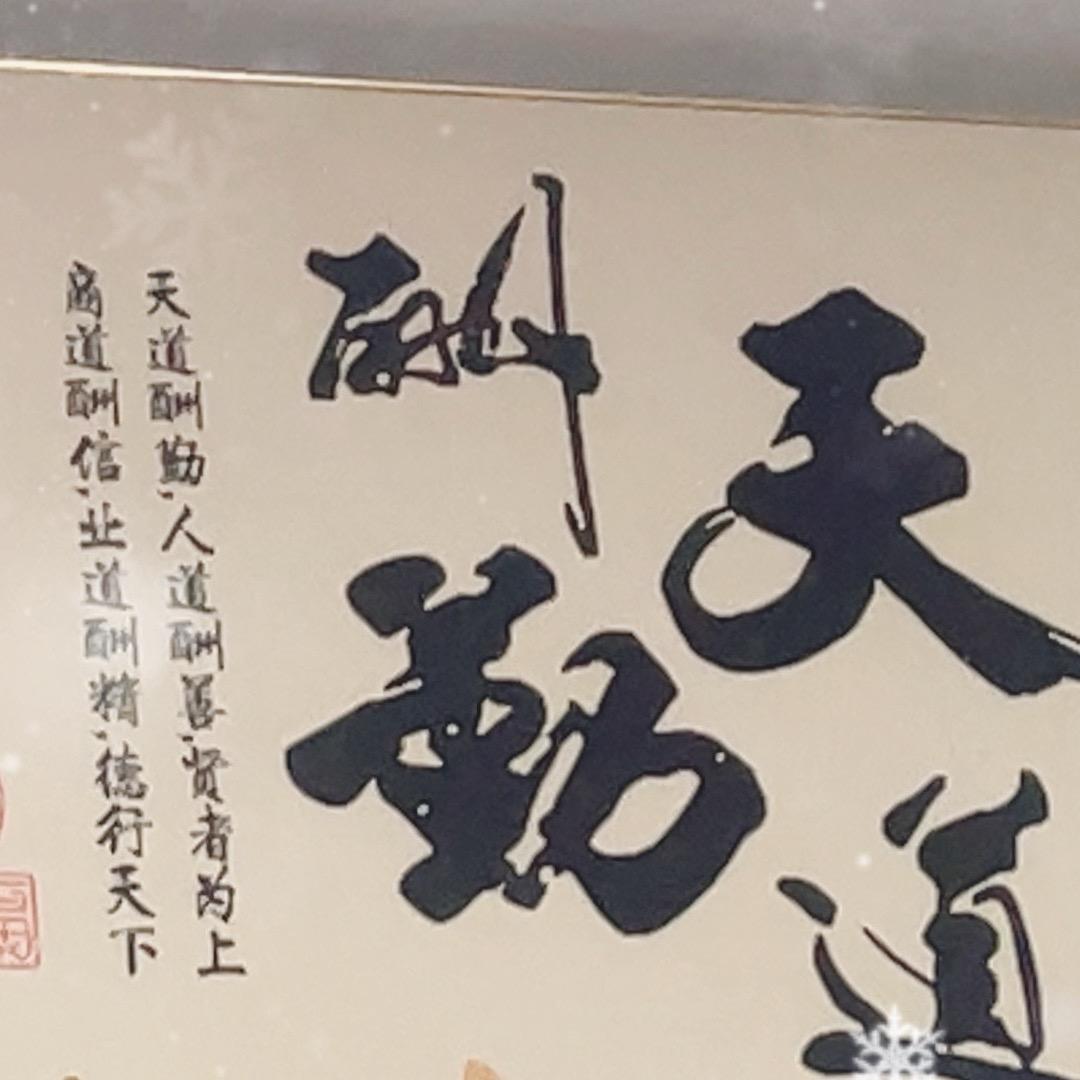 天道
酬勤
天道酬勤、人道酬善、贤者为上
商道酬信、业道酬精、德行天下